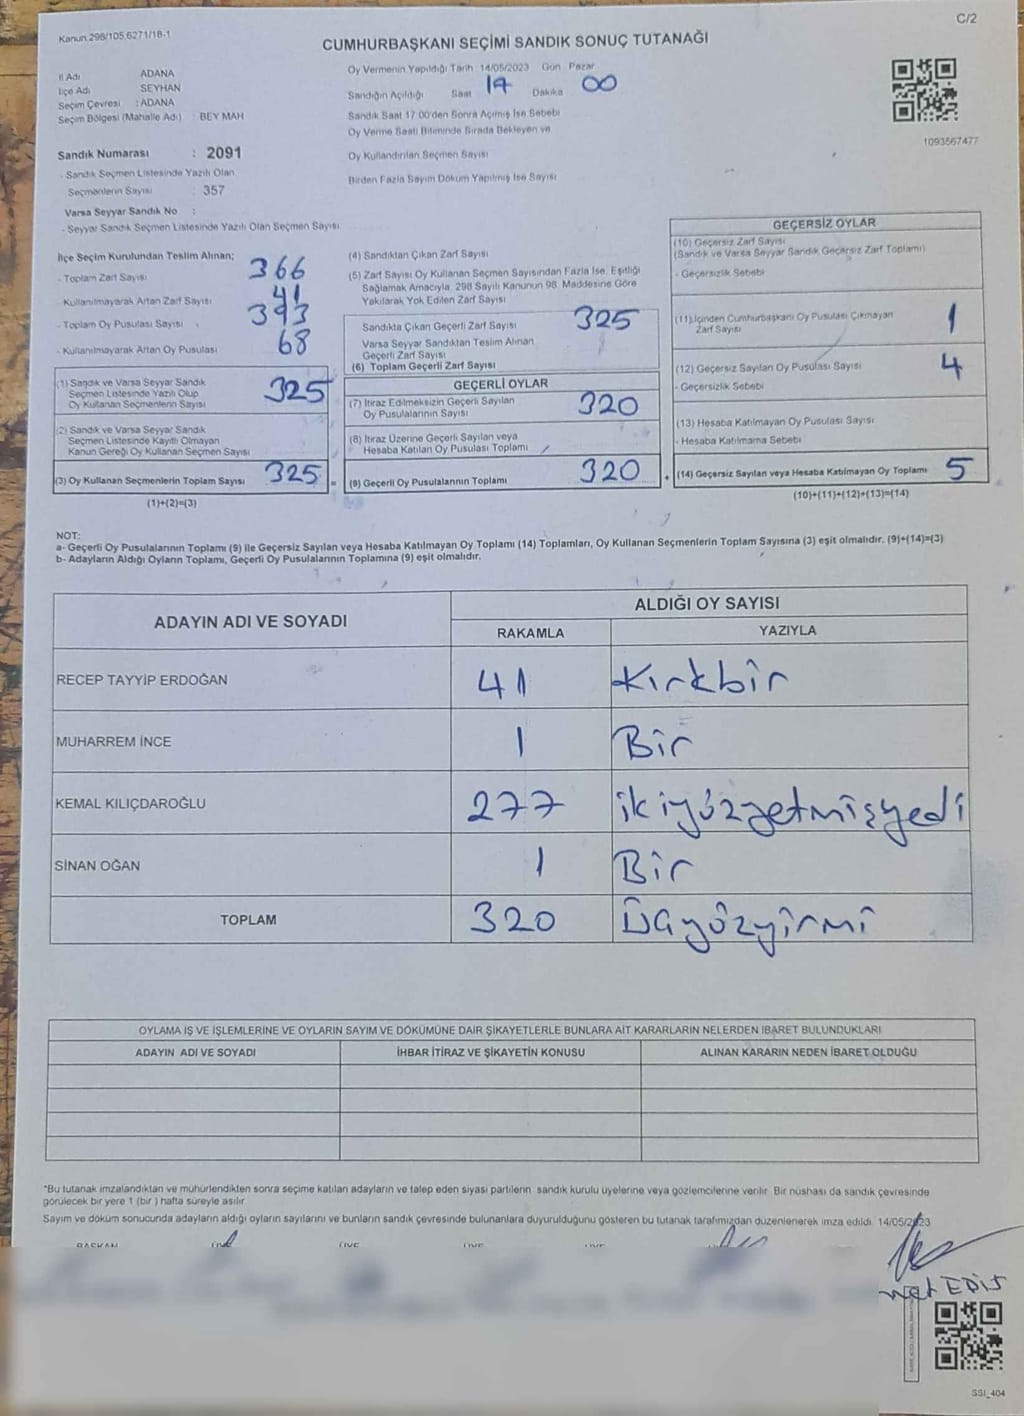 C/2
Kanun.298/105.6271/18-1
CUMHURBAŞKANI SEÇİMİ SANDIK SONUÇ TUTANAĞI
İl Adı ADANA
İlçe Adı SEYHAN
Seçim Çevresi : ADANA
Seçim Bölgesi (Mahalle Adı) : BEY MAH
Sandık Numarası : 2091
- Sandık Seçmen Listesinde Yazılı Olan
Seçmenlerin Sayısı : 357
Varsa Seyyar Sandık No :
- Seyyar Sandık Seçmen Listesinde Yazılı Olan Seçmen Sayısı
Oy Vermenin Yapıldığı Tarih :14/05/2023 Gün Pazar
Sandığın Açıldığı Saat 17 Dakika 00
Sandık Saat 17:00'den Sonra Açılmış İse Sebebi
Oy Verme Saati Bitiminde Sırada Bekleyen ve
Oy Kullandırılan Seçmen Sayısı
Birden Fazla Sayım Döküm Yapılmış İse Sayısı
1093567477
İlçe Seçim Kurulundan Teslim Alınan;
- Toplam Zarf Sayısı 366
- Kullanılmayarak Artan Zarf Sayısı 41
- Toplam Oy Pusulası Sayısı 393
- Kullanılmayarak Artan Oy Pusulası 68
(1) Sandık ve Varsa Seyyar Sandık
Seçmen Listesinde Yazılı Olup
Oy Kullanan Seçmenlerin Sayısı 325
(2) Sandık ve Varsa Seyyar Sandık
Seçmen Listesinde Kayıtlı Olmayan
Kanun Gereği Oy Kullanan Seçmen Sayısı
(3) Oy Kullanan Seçmenlerin Toplam Sayısı 325 =
(1)+(2)=(3)
(4) Sandıktan Çıkan Zarf Sayısı
(5) Zarf Sayısı Oy Kullanan Seçmen Sayısından Fazla İse, Eşitliği
Sağlamak Amacıyla, 298 Sayılı Kanunun 98. Maddesine Göre
Yakılarak Yok Edilen Zarf Sayısı
Sandıkta Çıkan Geçerli Zarf Sayısı 325
Varsa Seyyar Sandıktan Teslim Alınan
Geçerli Zarf Sayısı
(6) Toplam Geçerli Zarf Sayısı
GEÇERLİ OYLAR
(7) İtiraz Edilmeksizin Geçerli Sayılan
Oy Pusulalarının Sayısı 320
(8) İtiraz Üzerine Geçerli Sayılan veya
Hesaba Katılan Oy Pusulası Toplamı
(9) Geçerli Oy Pusulalarının Toplamı 320 +
GEÇERSİZ OYLAR
(10) Geçersiz Zarf Sayısı
(Sandık ve Varsa Seyyar Sandık Geçersiz Zarf Toplamı)
- Geçersizlik Sebebi
(11) İçinden Cumhurbaşkanı Oy Pusulası Çıkmayan
Zarf Sayısı 1
(12) Geçersiz Sayılan Oy Pusulası Sayısı 4
- Geçersizlik Sebebi
(13) Hesaba Katılmayan Oy Pusulası Sayısı
- Hesaba Katılmama Sebebi
(14) Geçersiz Sayılan veya Hesaba Katılmayan Oy Toplamı 5
(10)+(11)+(12)+(13)=(14)
NOT:
a- Geçerli Oy Pusulalarının Toplamı (9) ile Geçersiz Sayılan veya Hesaba Katılmayan Oy Toplamı (14) Toplamları, Oy Kullanan Seçmenlerin Toplam Sayısına (3) eşit olmalıdır. (9)+(14)=(3)
b- Adayların Aldığı Oyların Toplamı, Geçerli Oy Pusulalarının Toplamına (9) eşit olmalıdır.
ADAYIN ADI VE SOYADI ALDIĞI OY SAYISI
RAKAMLA YAZIYLA
RECEP TAYYİP ERDOĞAN 41 Kırkbir
MUHARREM İNCE 1 Bir
KEMAL KILIÇDAROĞLU 277 ikiyüzyetmişyedi
SİNAN OĞAN 1 Bir
TOPLAM 320 Üçyüzyirmi
OYLAMA İŞ VE İŞLEMLERİNE VE OYLARIN SAYIM VE DÖKÜMÜNE DAİR ŞİKAYETLERLE BUNLARA AİT KARARLARIN NELERDEN İBARET BULUNDUKLARI
ADAYIN ADI VE SOYADI İHBAR İTİRAZ VE ŞİKAYETİN KONUSU ALINAN KARARIN NEDEN İBARET OLDUĞU
*Bu tutanak imzalandıktan ve mühürlendikten sonra seçime katılan adayların ve talep eden siyasi partilerin sandık kurulu üyelerine veya gözlemcilerine verilir. Bir nüshası da sandık çevresinde
görülecek bir yere 1 (bir) hafta süreyle asılır.
Sayım ve döküm sonucunda adayların aldığı oyların sayılarını ve bunların sandık çevresinde bulunanlara duyurulduğunu gösteren bu tutanak tarafımızdan düzenlenerek imza edildi. 14/05/2023
BAŞKAN ÜYE ÜYE ÜYE ÜYE
EDİS
SSI_404